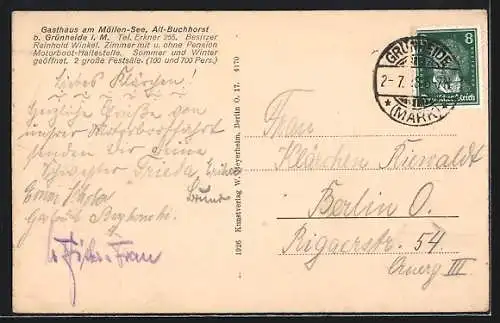 Gasthaus am Möllen-See, Alt-Buchhorst
b. Grünheide i. M. Tel. Erkner 255. Besitzer
Reinhold Winkel. Zimmer mit u. ohne Pension
Motorboot-Haltestelle. Sommer und Winter
geöffnet. 2 große Festsäle. (100 und 700 Pers.)
Liebes Klärchen!
Herzliche Grüße von
unserer Motorbootfahrt
senden Dir Deine
Schwester Frieda
Bruno
Frau
1926 Kunstverlag W. Meyerheim, Berlin O. 17. 4170
GRÜNHEIDE
2-7
(MARK)
8
Deutsches Reich
Frau
Klärchen
Berlin O.
Rigaerstr. 54
Querg III